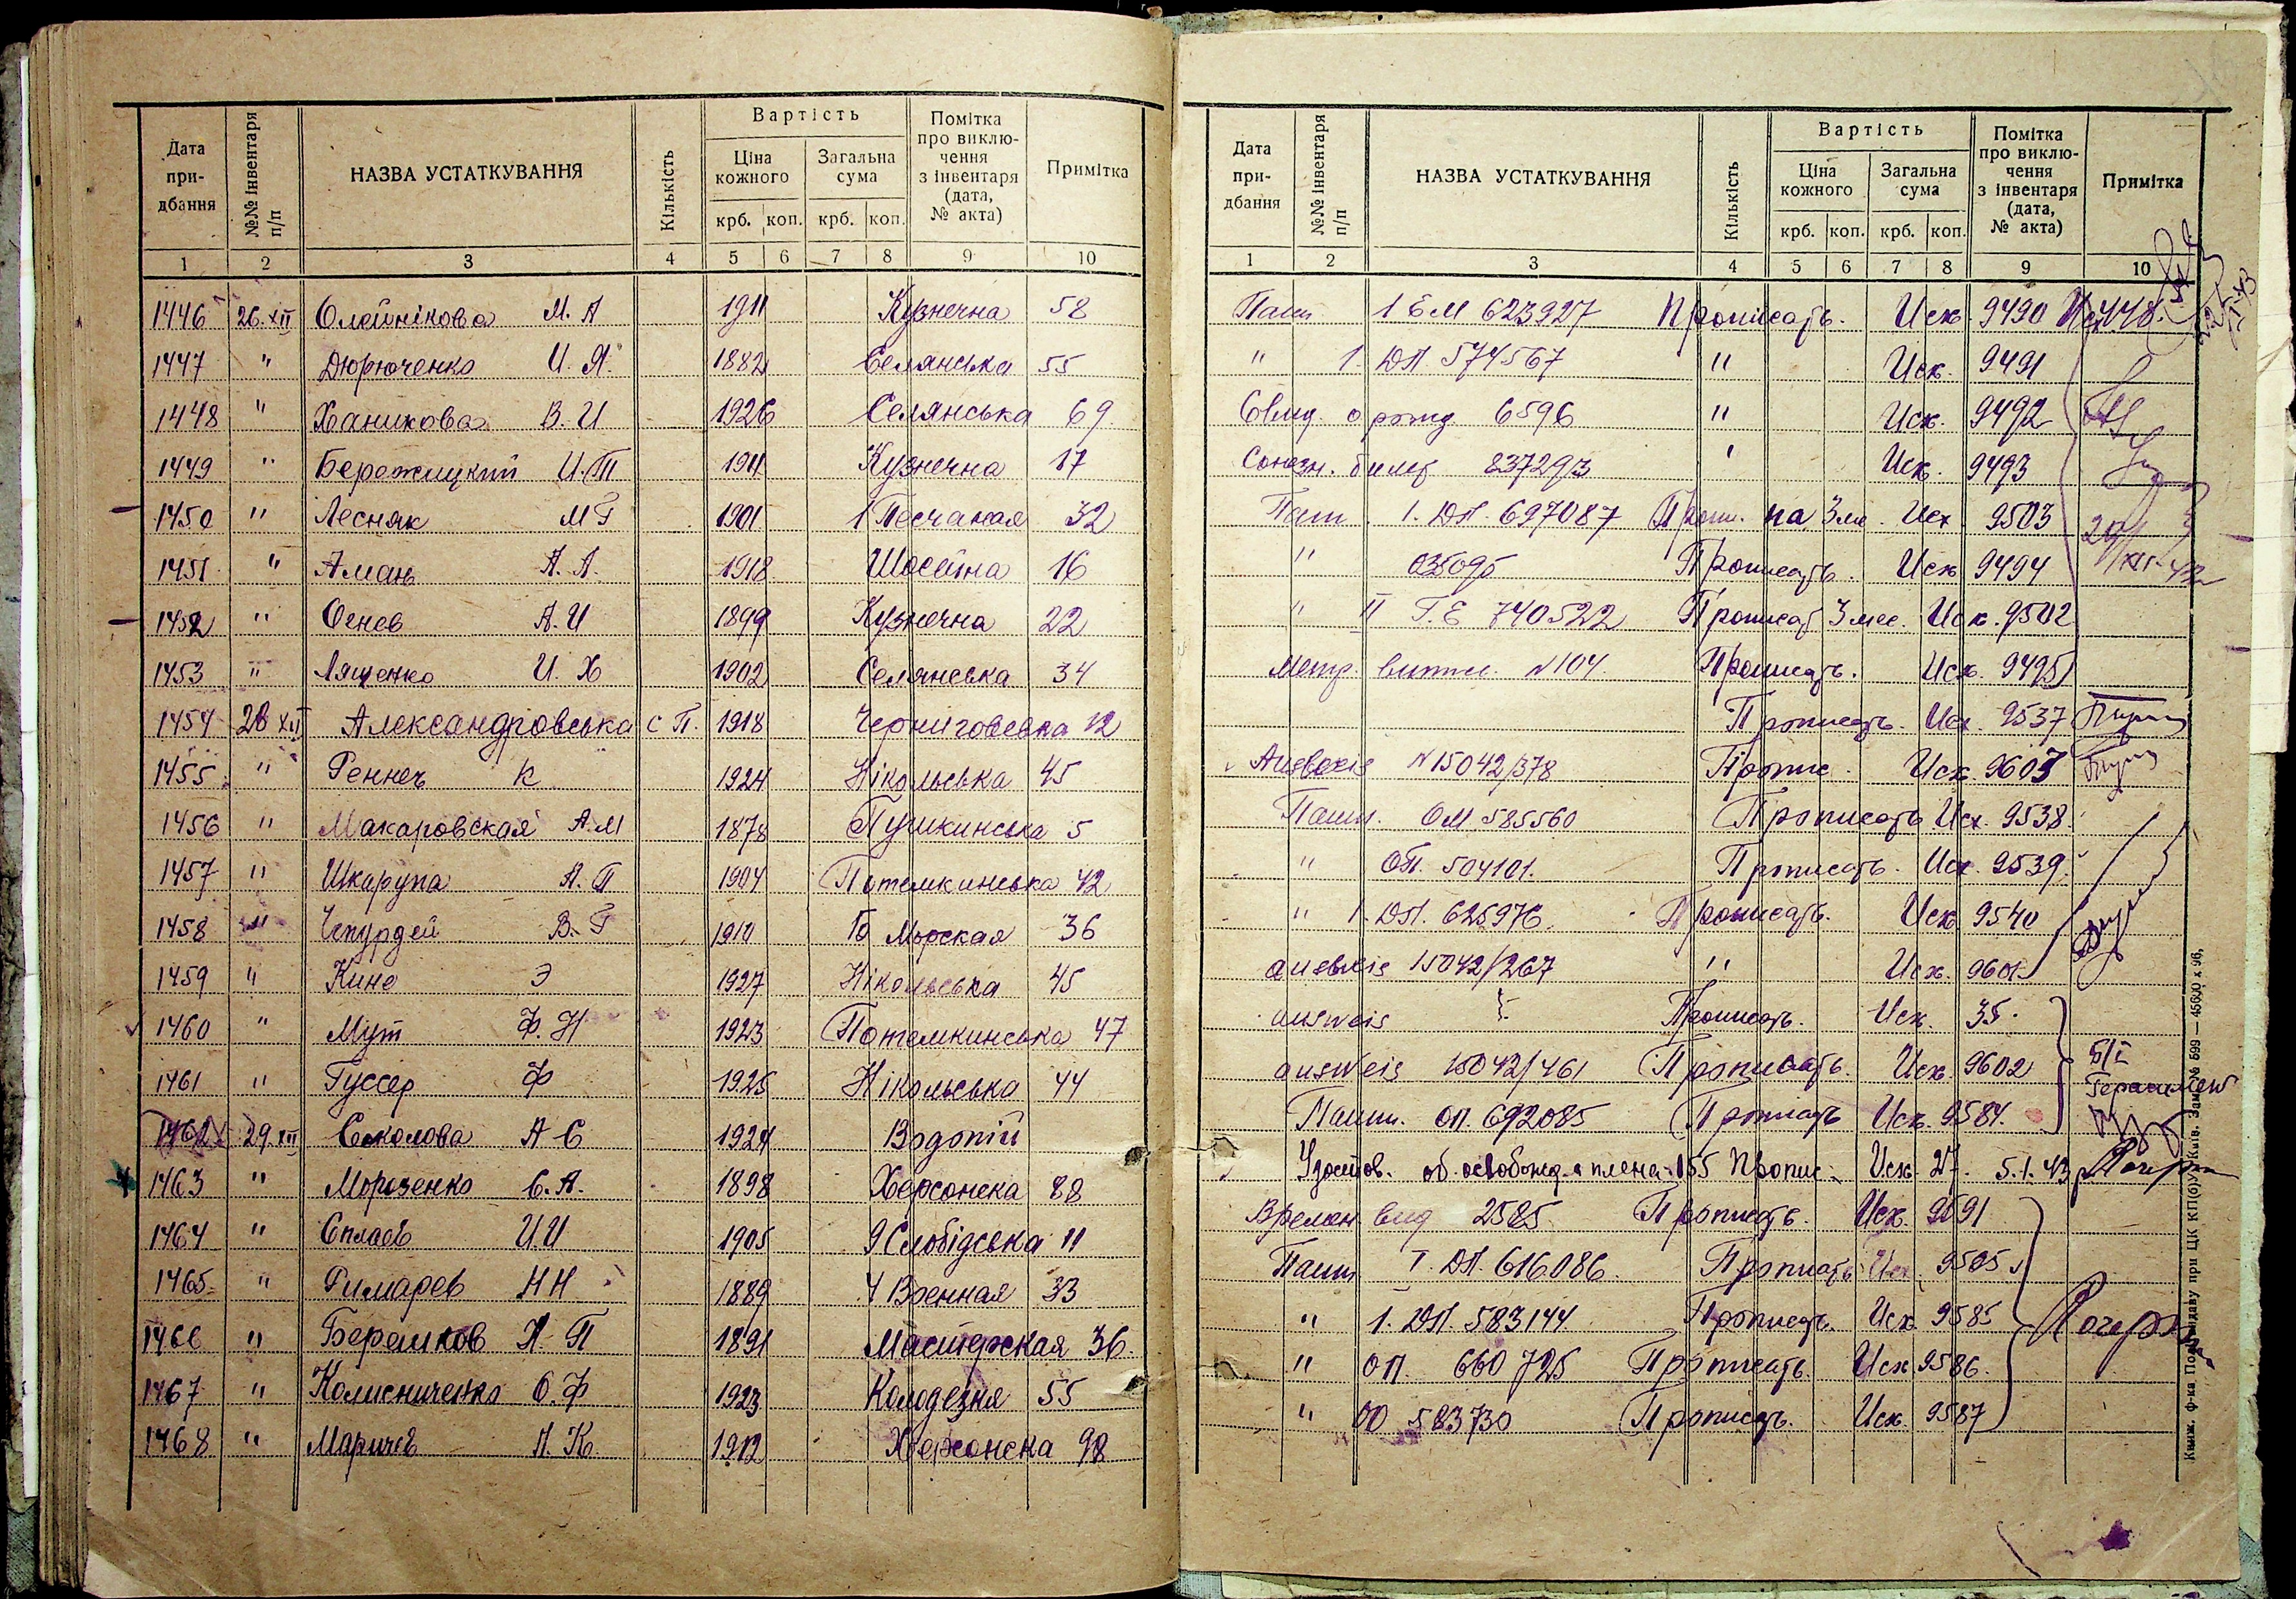 Дата придбання №№ інвентаря п/п НАЗВА УСТАТКУВАННЯ Кількість Вартість Ціна кожного крб. коп. Загальна сума крб. коп. Помітка про виключення з інвентаря (дата, № акта) Примітка
1 2 3 4 5 6 7 8 9 10
1446 26.XII Олейнікова М. А 1911 Кузнечна 58
1447 " Дюрюченко И. Я. 1882 Селянська 55
1448 " Ханикова В. И 1926 Селянська 69.
1449 " Бережицкий И. Т 1911 Кузнечна 17
1450 " Лесняк М Г 1901 1 Песчаная 32
1451 " Аман А. А. 1918 Шосейна 16
1452 " Огнев А. И 1899 Кузнечна 22
1453 " Лященко И. Х 1902 Селянська 34
1454 28 XII Александровська С П. 1918 Черниговська 12
1455 " Реннег К 1924 Нікольська 45
1456 " Макаровская А. М 1878 Пушкинська 5
1457 " Шкарупа А. П 1904 Потемкинська 42
1458 " Чепурдей В. Г 1910 Б Морская 36
1459 " Кине Э 1927 Нікольська 45
1460 " Мут Ф. Н 1923 Потемкинська 47
1461 " Гуссер Ф 1925 Нікольська 44
1462 29.XII Соколова А С 1924 Водопій
1463 " Морозенко С. А. 1898 Херсонска 88
1464 " Сплаев И. И 1905 9 Слобідська 11
1465 " Римарев Н Н 1889 4 Военная 33
1466 " Берешков А. П 1891 Мастерская 36.
1467 " Колисниченко О. Ф 1923 Колодезня 55
1468 " Маричев А. К. 1912 Херсонска 98
Дата придбання №№ інвентаря п/п НАЗВА УСТАТКУВАННЯ Кількість Вартість Ціна кожного крб. коп. Загальна сума крб. коп. Помітка про виключення з інвентаря (дата, № акта) Примітка
1 2 3 4 5 6 7 8 9 10
Пасп 1 ЕМ 623927 Прописать. Исх 9490
" 1. ДП 574567 " Исх. 9491
Свид. о рожд 6596 " Исх. 9492
Союзн. билет 237293 " Исх. 9493
Пасп. 1. ДП. 697087 Проп. на 3 ме. Исх 9503
" 035095 Прописать. Исх 9494
" II Г. Е 740522 Прописат 3 мес. Исх. 9502
Метр. випис. N 104. Прописать. Исх. 9495
Прописать. Исх. 9537
Ausweis N 15042/378 Пропис. Исх. 9603
Пасп. ОМ 585560 Прописать Исх. 9538.
" ОП. 504101. Прописать. Исх. 9539.
" 1. ДП. 625976 Прописать. Исх 9540
ausweis 15042/267 " Исх. 9601
ausweis Прописать. Исх. 35.
ausweis 15042/461 Прописать. Исх 9602
Пасп. ОП. 692085 Прописать Исх. 9584.
Удостов. об освобожд. с плена 155 Пропис. Исх 27. 5. 1. 43
Времен вид 2585 Прописать. Исх. 9591
Пасп. I. ДП. 616086. Прописать Исх. 9505
" 1. ДП. 583144 Прописать. Исх. 9585
" ОП. 660725 Прописать. Исх 9586.
" ОО 583730 Прописать. Исх. 9587